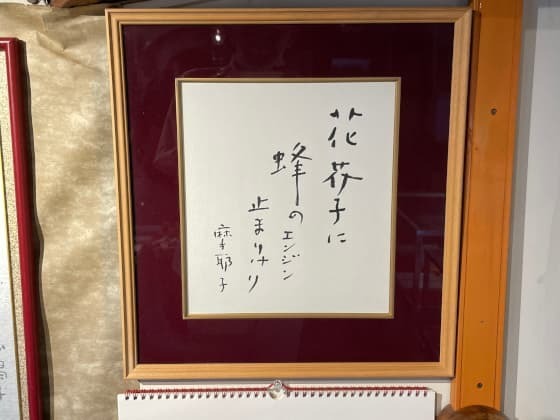 花芥子に
蜂のエンジン
止まりけり
摩耶子